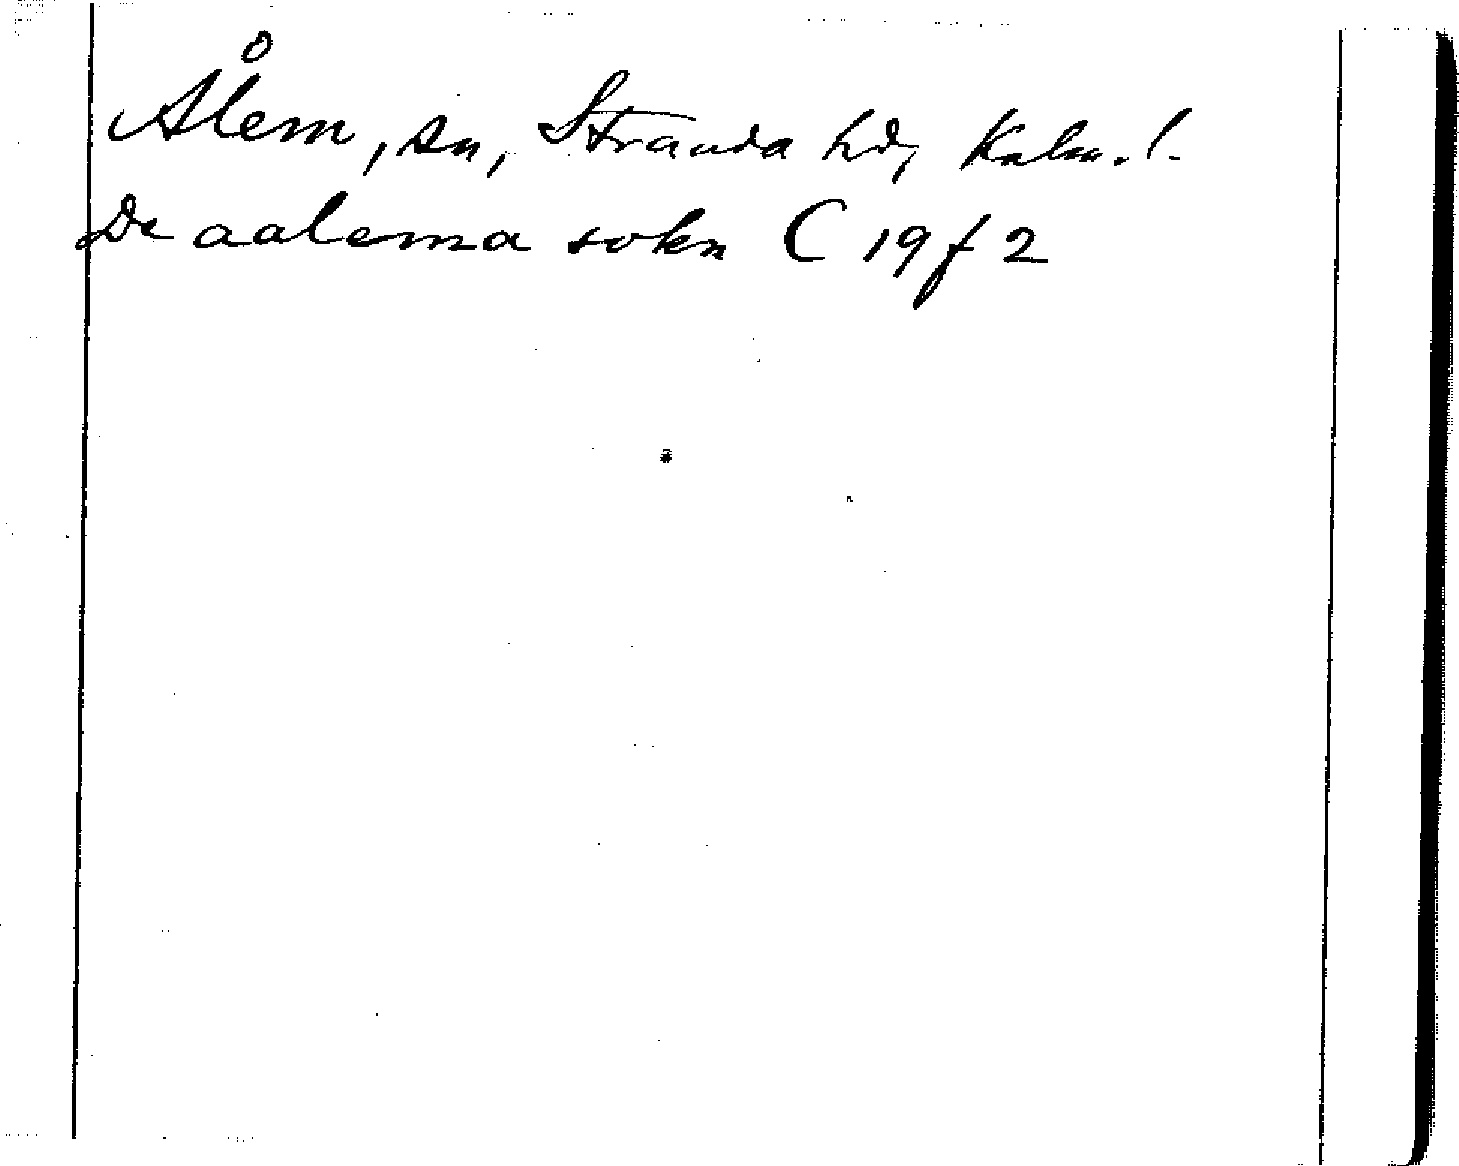 Ålem, sn, Stranda hd, Kalm. l.
De aalema sokn C 19 f 2